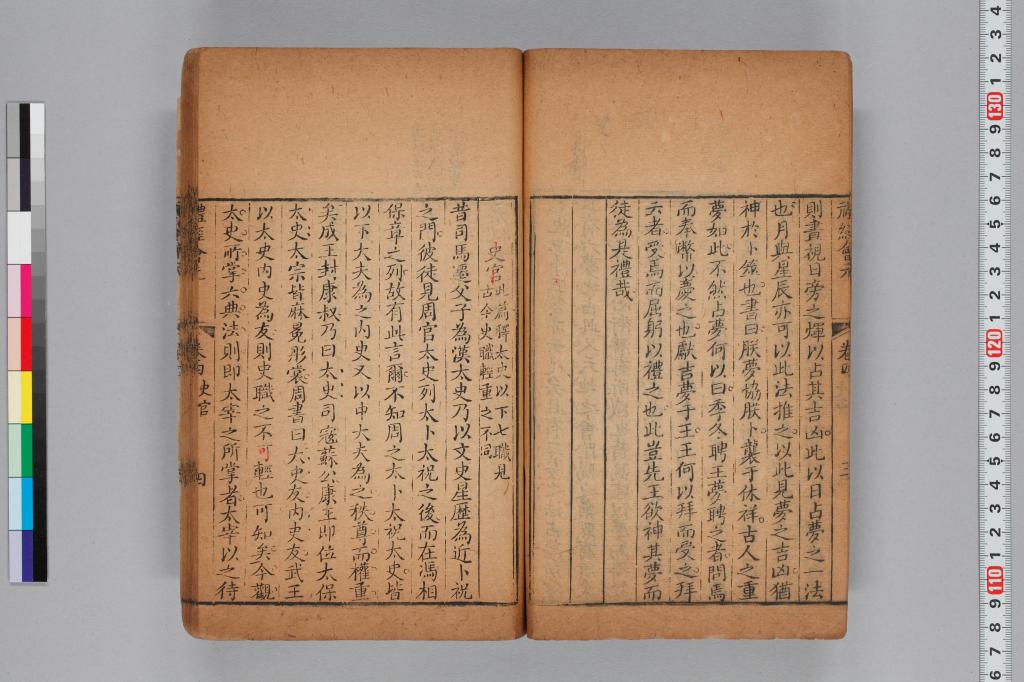 則晝視日旁之煇以占其吉凶此以日占夢之一法
也月與星辰亦可以此法推之以此見夢之吉凶猶
神於卜筮也書曰朕夢協朕卜襲于休祥古人之重
夢如此不然占夢何以曰季冬聘王夢聘之者問焉
而奉幣以慶之也獻吉夢于王王何以拜而受之拜
云者受焉而屈躬以禮之也此豈先王欲神其夢而
徒為是禮哉
卷四
史官
此篇釋太史以下七職見
古今史職輕重之不同
昔司馬遷父子為漢太史乃以文史星歷為近卜祝
之門彼徒見周官太史列太卜太祝之後而在馮相
保章之列故有此言爾不知周之太卜太祝太史皆
以下大夫為之內史又以中大夫為之秩尊而權重
矣成王封康叔乃曰太史司寇蘇公康王即位太保
太史太宗皆麻冕彤裳周書曰太史友內史友武王
以太史內史為友則史職之不可輕也可知矣今觀
太史所掌六典法則即太宰之所掌者太宰以之待
卷四 史官
四